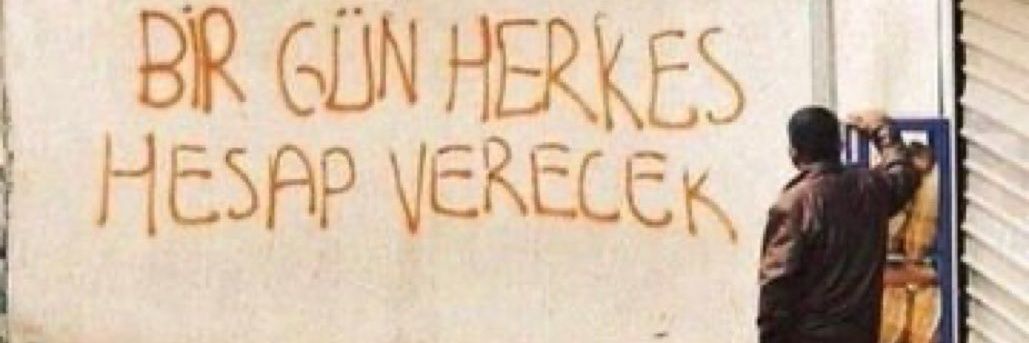 BİR GÜN HERKES
HESAP VERECEK